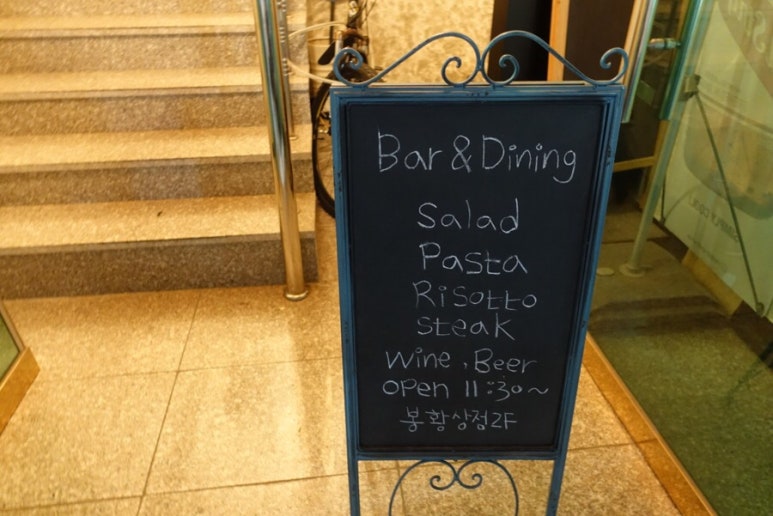 Bar & Dining
Salad
Pasta
Risotto
steak
wine , Beer
open 11:30~
봉황상정2F